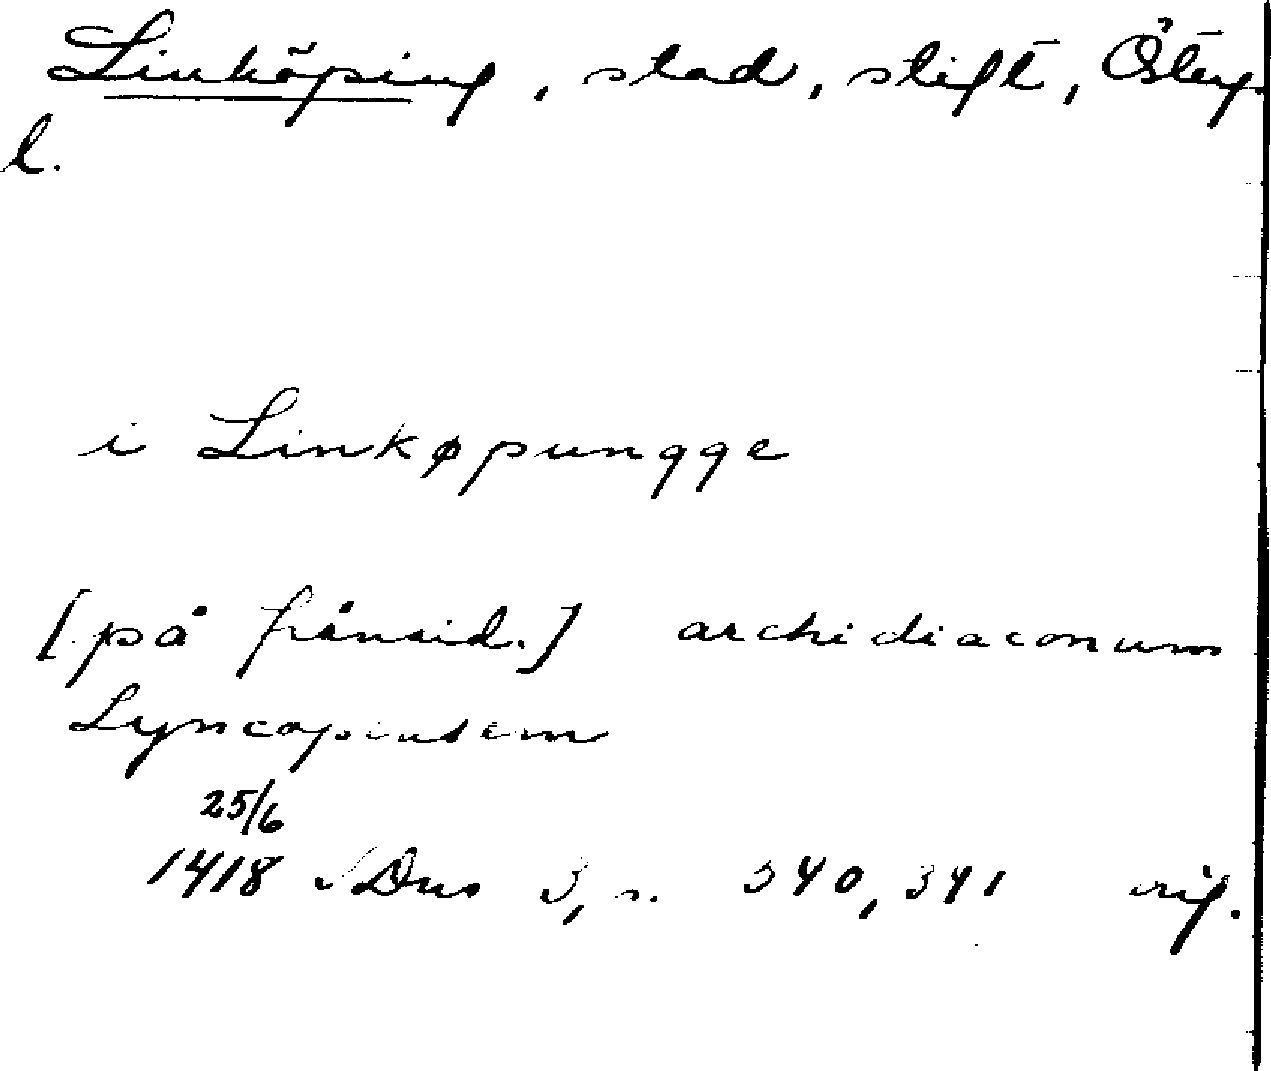 Linköping, stad, stift, Österg.
l.
i Linkøpungge
[på frånsid.] archidiaconum
Lyncopensem
25/6
1418 SDns 3, s. 340, 341 orig.